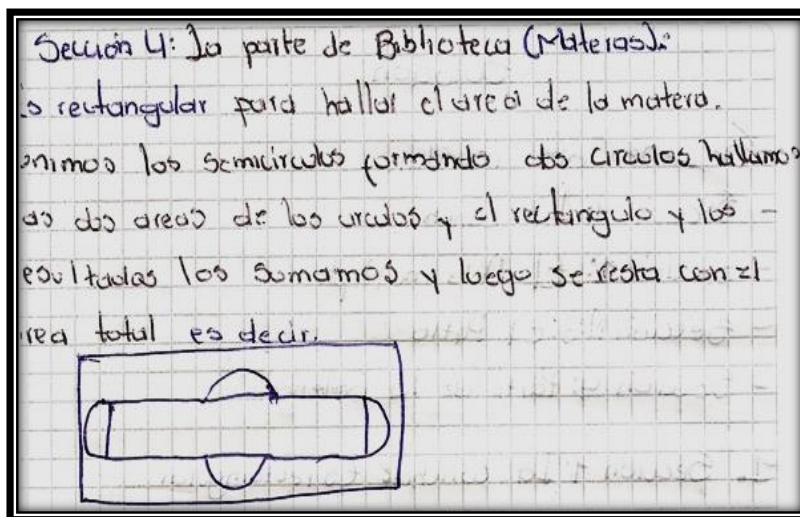 Sección 4: La parte de Biblioteca (Materas).
s rectangular para hallar el area de la matera.
nimos los semicirculos formando dos circulos hallamos
as dos areas de los circulos y el rectangulo y los -
esultados los sumamos y luego se resta con el
rea total es decir.